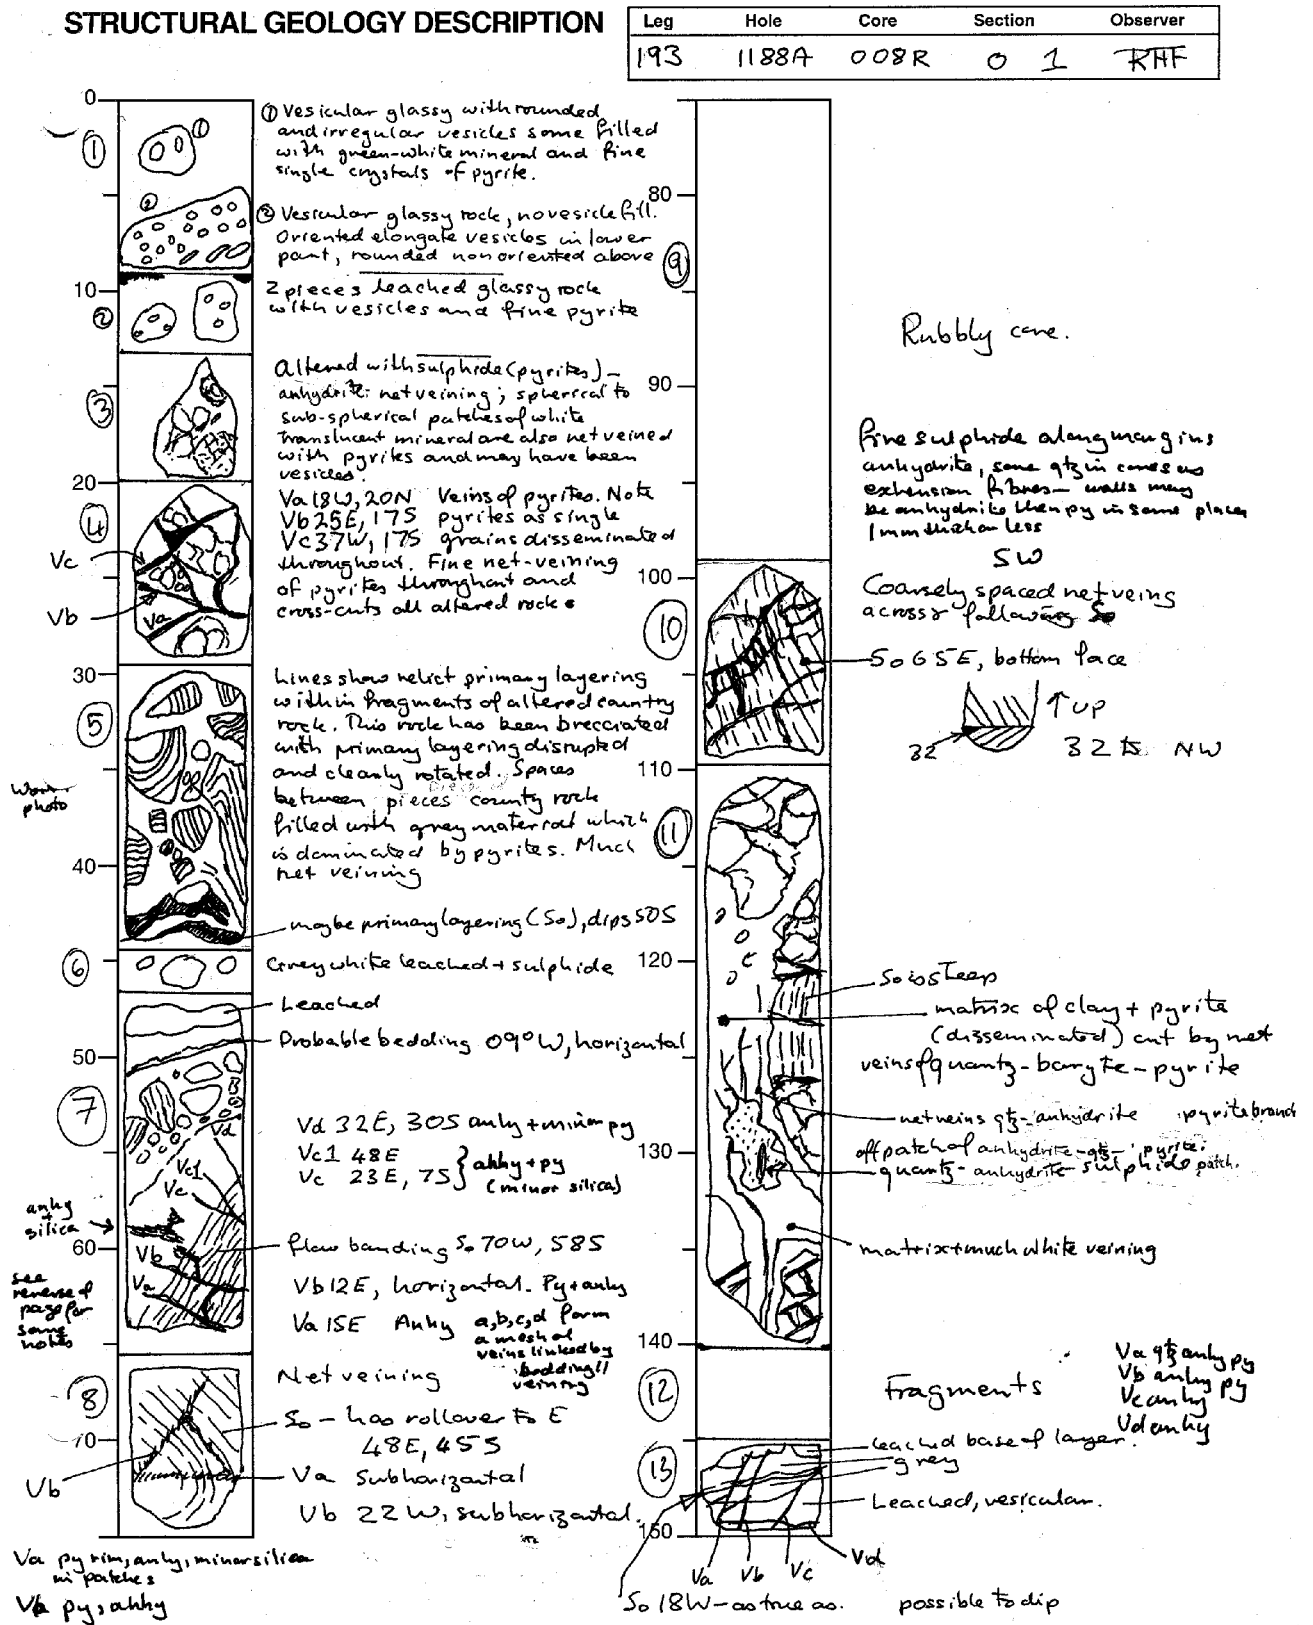 STRUCTURAL GEOLOGY DESCRIPTION
Leg Hole Core Section Observer
193 1188A 008R 0 1 RHF
0
10
20
30
40
50
60
70
① Vesicular glassy with rounded
and irregular vesicles some filled
with green-white mineral and fine
single crystals of pyrite.
② Vesicular glassy rock, no vesicle fill.
Oriented elongate vesicles in lower
part, rounded non oriented above
2 pieces leached glassy rock
with vesicles and fine pyrite
Altered with sulphide (pyrites) –
anhydrite net veining; spherical to
sub-spherical patches of white
translucent mineral are also net veined
with pyrites and may have been
vesicles.
Va 18W, 20N Veins of pyrites. Note
Vb 25E, 17S pyrites as single
Vc 37W, 17S grains disseminated
throughout. Fine net-veining
of pyrites throughout and
cross-cuts all altered rock.
Lines show relict primary layering
within fragments of altered country
rock. This rock has been brecciated
with primary layering disrupted
and cleanly rotated. Spaces
between pieces county rock
filled with grey material which
is dominated by pyrites. Much
net veining
maybe primary layering (So), dips 50S
Grey white leached + sulphide
Leached
Probable bedding 09°W, horizontal
Vd 32E, 30S anhy + minor py
Vc1 48E
Vc 23E, 7S } anhy + py
(minor silica)
flow banding So 70W, 58S
Vb 12E, horizontal. Py + anhy
Va 15E Anhy a,b,c,d form
a mesh of
veins linked by
bedding //
veining
Net veining
So – has rollover to E
48E, 45S
Va subhorizontal
Vb 22W, subhorizontal.
①
②
③
④
⑤
⑥
⑦
⑧
①
②
Vc
Vb
Va
photo
Vd
Vc1
Vc
Vb
Va
anhy
+
silica
see
reverse of
page for
some
notes
Vb
Va py rim, anhy, minor silica
in patches
Vb py, anhy
80
90
100
110
120
130
140
150
⑨
⑩
⑪
⑫
⑬
Rubbly core.
fine sulphide along margins
anhydrite, some qtz in cores as
extension fibres – walls may
be anhydrite then py in some places
1mm thick or less
SW
Coarsely spaced net veing
across following So
So 65E, bottom face
↑ up
32
32 to NW
So is steep
matrix of clay + pyrite
(disseminated) cut by net
veins of quartz-baryte-pyrite
net veins qtz-anhydrite pyrite branch
off patch of anhydrite-qtz-pyrite.
quartz-anhydrite-sulphide patch.
matrix + much white veining
Fragments
Va qtz anhy py
Vb anhy py
Vc anhy
Vd anhy
leached base of layer.
grey
Leached, vesicular.
Va Vb Vc Vd
So 18W – as true as. possible to dip